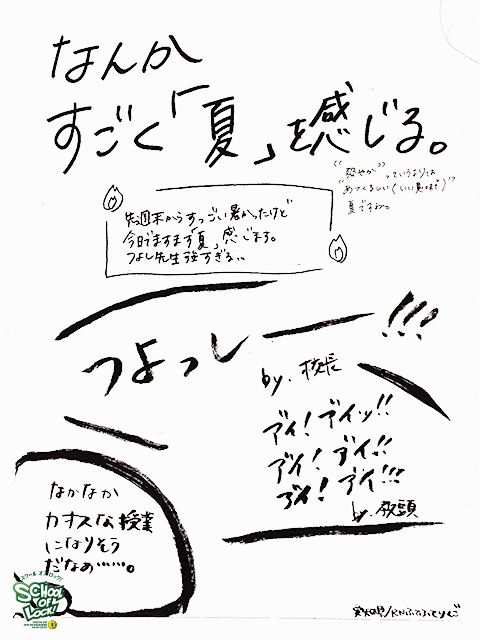 なんか
すごく「夏」を感じる。
"爽やか"っていうよりは
"あつくるしい(いい意味で)"
夏ですね。
先週末からすっごい暑かったけど
今日でますます「夏」感じます。
つよし先生強すぎる…
つよっしー!!!
by.校長
ブイ!ブイッ!!
ブイ!ブイ!!
ブイ!ブイ!!!
by.教頭
なかなか
カオスな授業
になりそう
だなぁ……。
スクールオブロック!
SCHOOL
OF
LOCK!